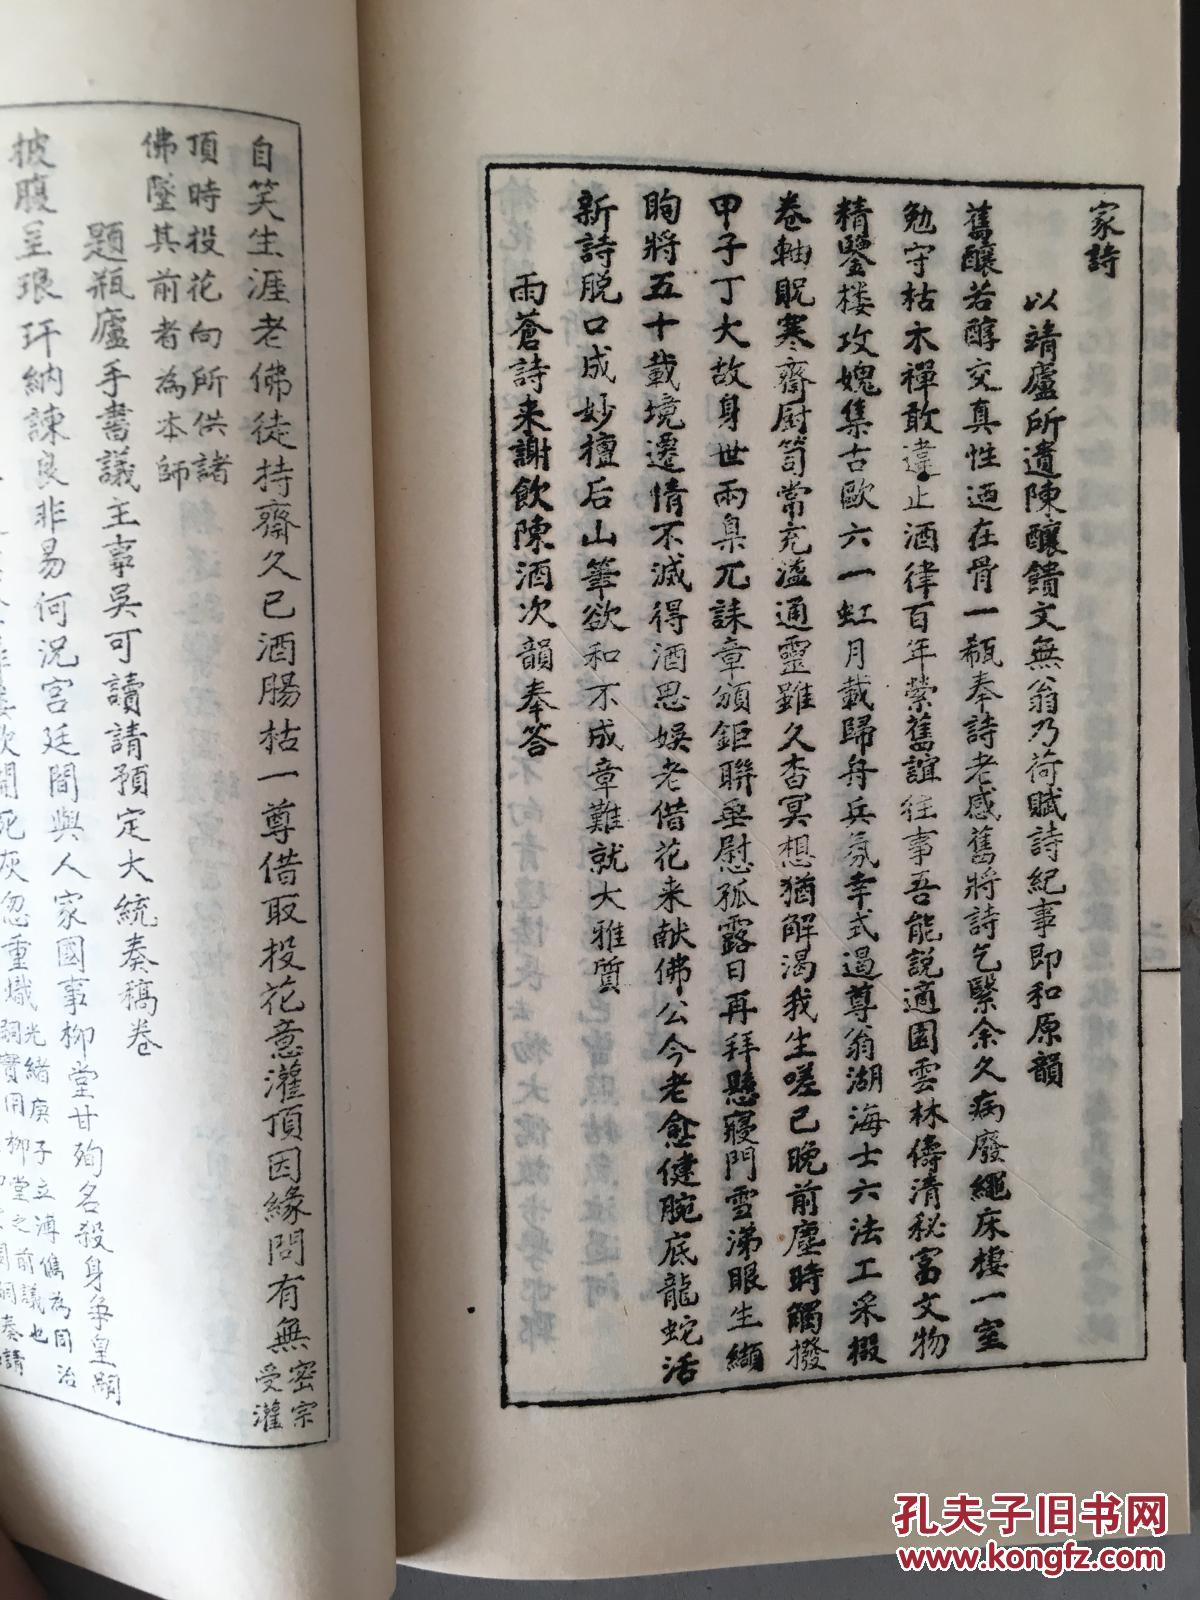 家詩
以靖廬所遺陳釀饋文無翁乃荷賦詩紀事即和原韻
舊釀若醇交真性迺在骨一瓻奉詩老感舊將詩乞緊余久病廢繩床棲一室
勉守枯木禪敢違止酒律百年縈舊誼往事吾能說適園雲林儔清秘富文物
精鑒樓攻媿集古歐六一虹月載歸舟兵氛幸式遏尊翁湖海士六法工采掇
卷軸貺寒齋厨笥常充溢通靈雖久杳冥想猶解渴我生嗟已晚前塵時觸撥
甲子丁大故身世兩臬兀誄章頒鉅聯垂慰孤露日再拜懸寢門雪涕眼生纈
眴將五十載境遷情不滅得酒思娛老借花来献佛公今老愈健腕底龍蛇活
新詩脱口成妙擅后山筆欲和不成章難就大雅質
雨蒼詩来謝飲陳酒次韻奉答
自笑生涯老佛徒持齋久已酒腸枯一尊借取投花意灌頂因緣問有無密宗受灌
頂時投花向所供諸
佛墜其前者為本師
題瓶廬手書議主事吳可讀請預定大統奏稿卷
披腹呈琅玕納諫良非易何況宮廷間與人家國事柳堂甘殉名殺身爭皇嗣
開死灰忽重熾光緒庚子立溥儁為同治
嗣實用柳堂之前議也
孔夫子旧书网
www.kongfz.com